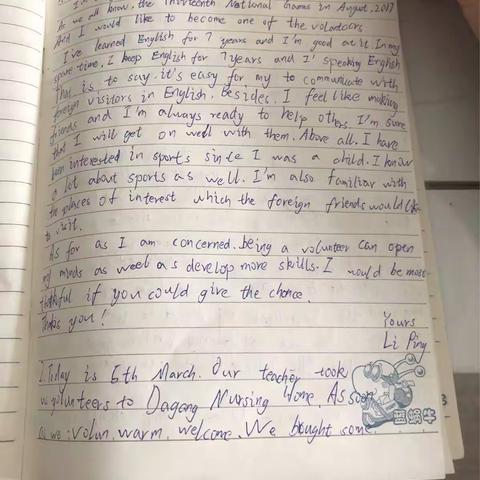 As we all know, the Thirteenth National Games in August, 2017
And I would like to become one of the volunteers
I've learned English for 7 years and I'm good at it. In my
spare time, I keep English for 7 years and I' speaking English
That is to say, it's easy for my to communicate with
foreign visitors in English. Besides, I feel like making
friends and I'm always ready to help others. I'm sure
that I will get on well with them. Above all, I have
been interested in sports since I was a child. I know
a lot about sports as well. I'm also familiar with
the places of interest which the foreign friends would like
to visit.
As for as I am concerned, being a volunteer can open
my minds as weel as develop more skills. I would be most
if you could give the chance.
Thaks you!
Yours
Li Ping
2. Today is 5th March. Our teacher took
us volunteers to Dagang Nursing Home. As soon
as we : volun, warm, welcome. We bought some
蓝蜗牛